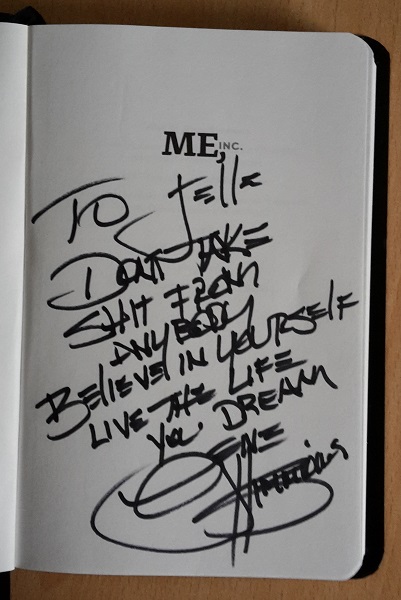 ME, INC.
TO Jelle
DON'T TAKE
SHIT FROM
ANYBODY
BELIEVE IN YOURSELF
LIVE THE LIFE
YOU DREAM
GENE
SIMMONS